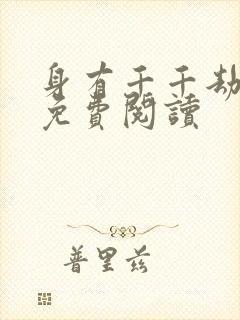 身有千千劫
免費閱讀
普里兹